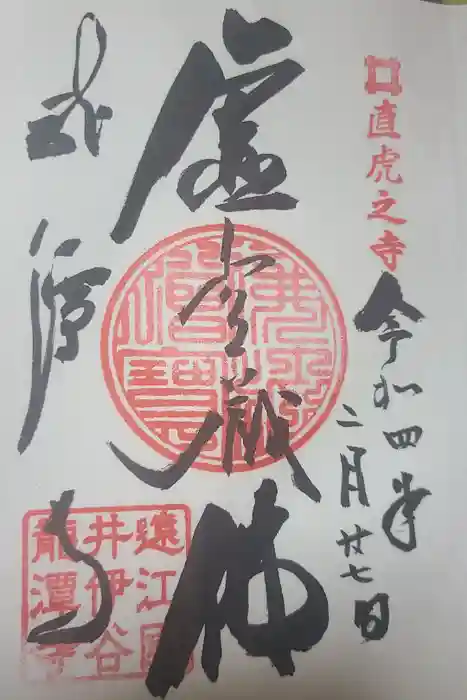 直虎之寺
令和四年
二月廿七日
虚空蔵佛
佛法
僧寶
龍潭寺
遠江國
井伊谷
龍潭寺